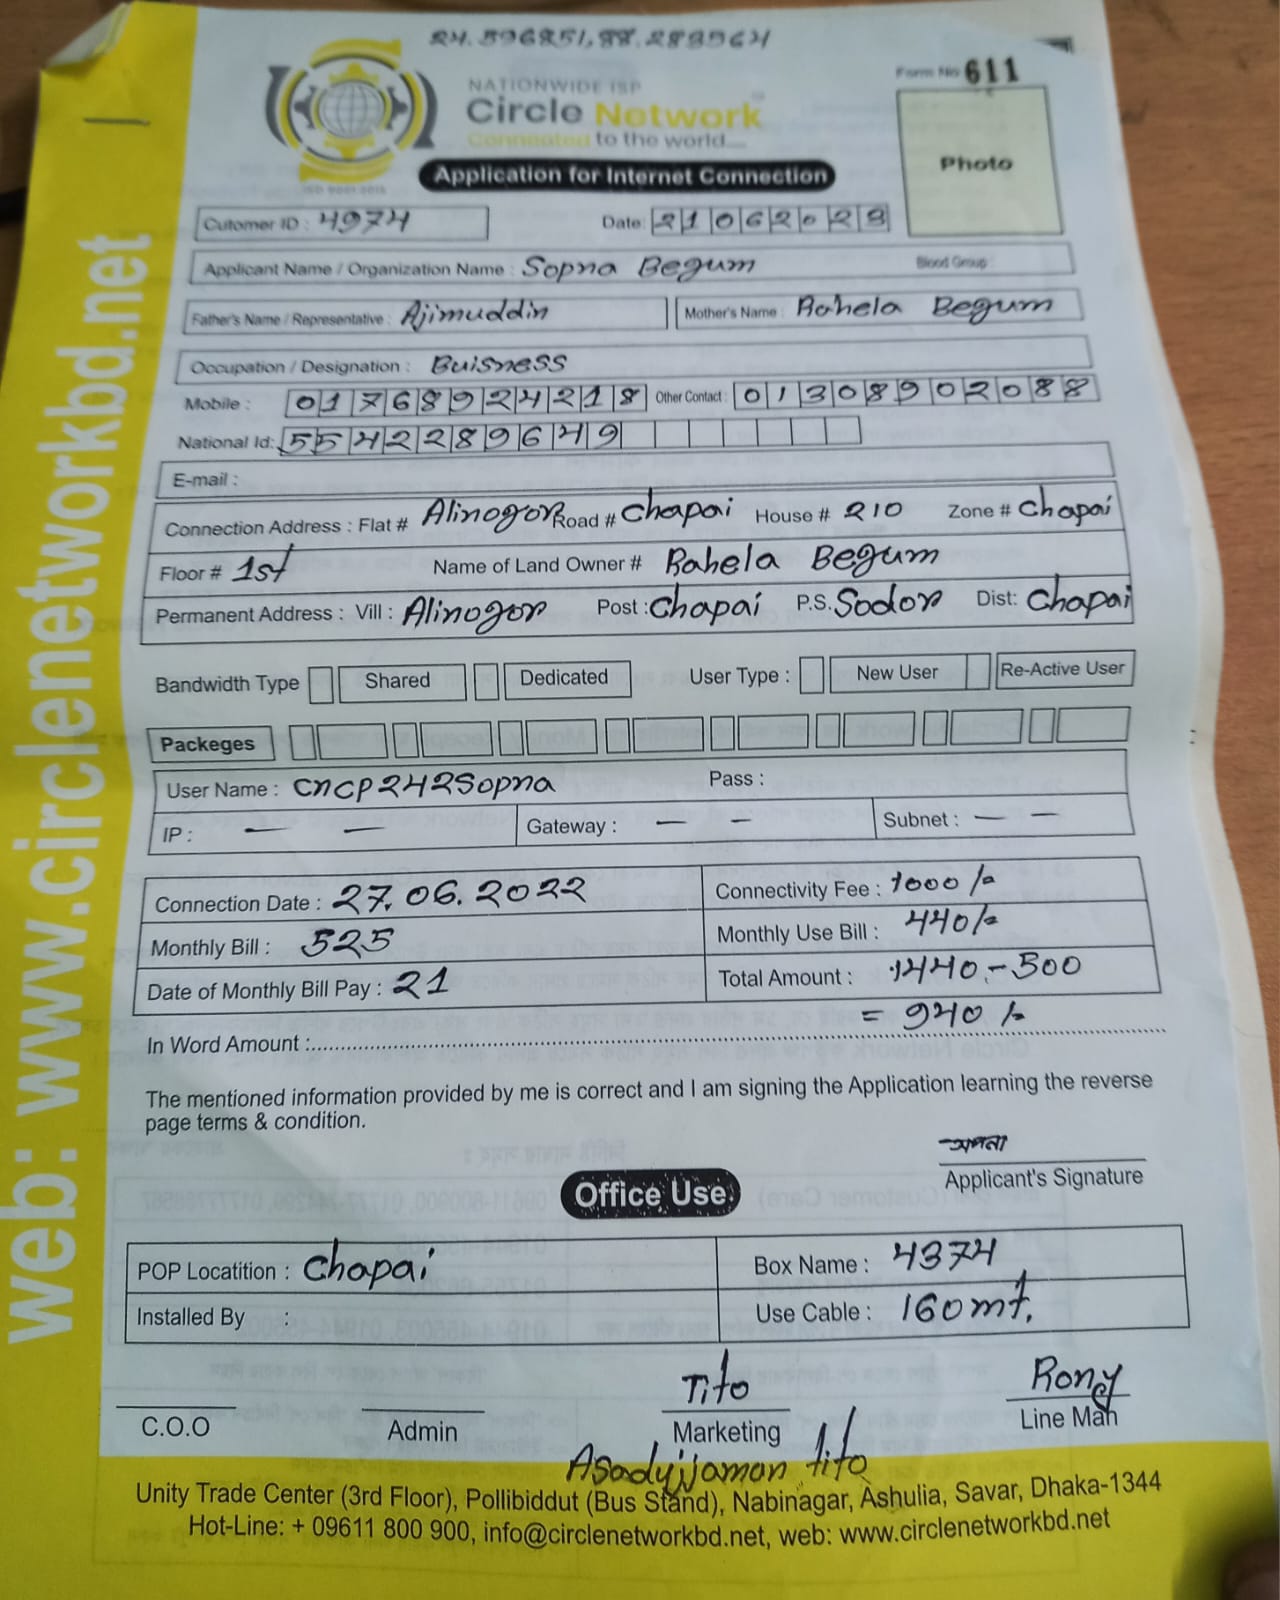 24.596851,88.283564
Form No 611
NATIONWIDE ISP
Circle Network
Connected to the world....
ISO 9001:2015
Photo
Application for Internet Connection
Cutomer ID : 4974 Date: 21062023
Applicant Name / Organization Name : Sopna Begum Blood Group :
Father's Name / Representative : Ajimuddin Mother's Name : Rahela Begum
Occupation / Designation : Buisness
Mobile : 01768924218 Other Contact : 01308902088
National Id: 5542289649
E-mail :
Connection Address : Flat # Alinogor Road # Chapai House # 210 Zone # Chapai
Floor # 1st Name of Land Owner # Rahela Begum
Permanent Address : Vill : Alinogor Post : Chapai P.S. Sodor Dist: Chapai
Bandwidth Type Shared Dedicated User Type : New User Re-Active User
Packeges
User Name : CNCP242Sopna Pass :
IP : — — Gateway : — — Subnet : — —
Connection Date : 27.06.2022 Connectivity Fee : 1000/=
Monthly Bill : 525 Monthly Use Bill : 440/=
Date of Monthly Bill Pay : 21 Total Amount : 1440 - 500
= 940/=
In Word Amount :
The mentioned information provided by me is correct and I am signing the Application learning the reverse
page terms & condition.
Applicant's Signature
Office Use
POP Locatition : Chapai Box Name : 4374
Installed By : Use Cable : 160mt.
Tito Rony
C.O.O Admin Marketing Line Man
Asadujjaman tito
Unity Trade Center (3rd Floor), Pollibiddut (Bus Stand), Nabinagar, Ashulia, Savar, Dhaka-1344
Hot-Line: + 09611 800 900, info@circlenetworkbd.net, web: www.circlenetworkbd.net
web: www.circlenetworkbd.net